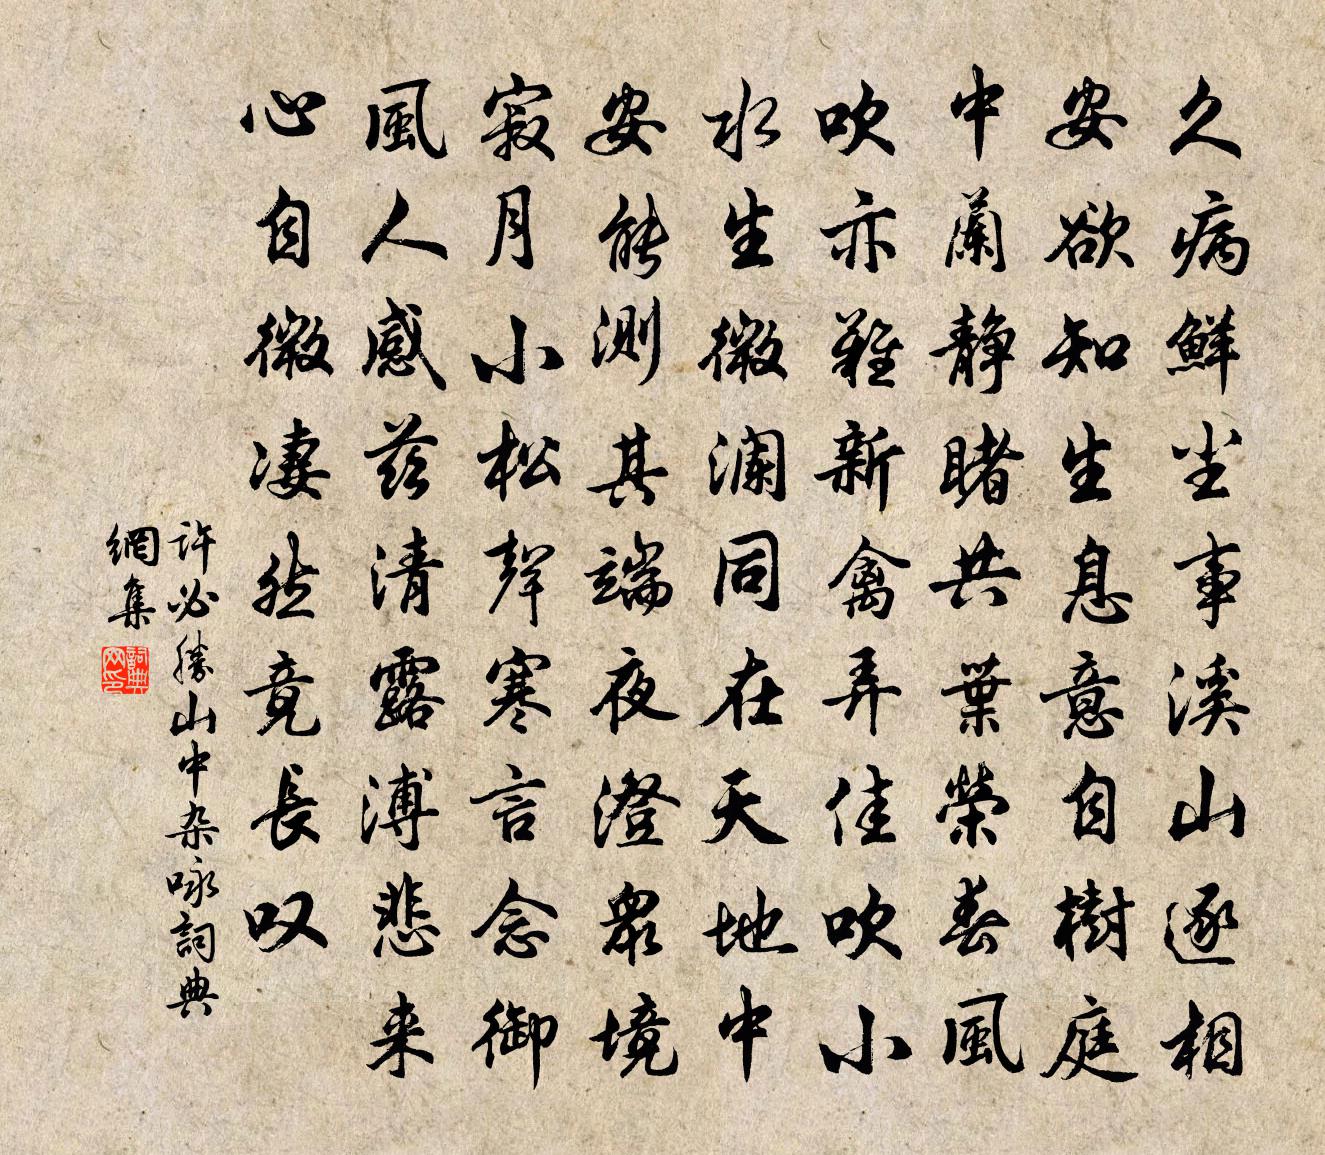 久病鮮尘事溪山逐相
安欲知生息意自樹庭
中蘭静睹共葉榮春風
吹亦難新禽弄佳吹小
水生微澜同在天地中
安能測其端夜澄眾境
寂月小松聲寒言念御
風人感兹清露漙悲来
心自微淒然竟長叹
許必勝山中杂咏詞典
網集
詞典
网